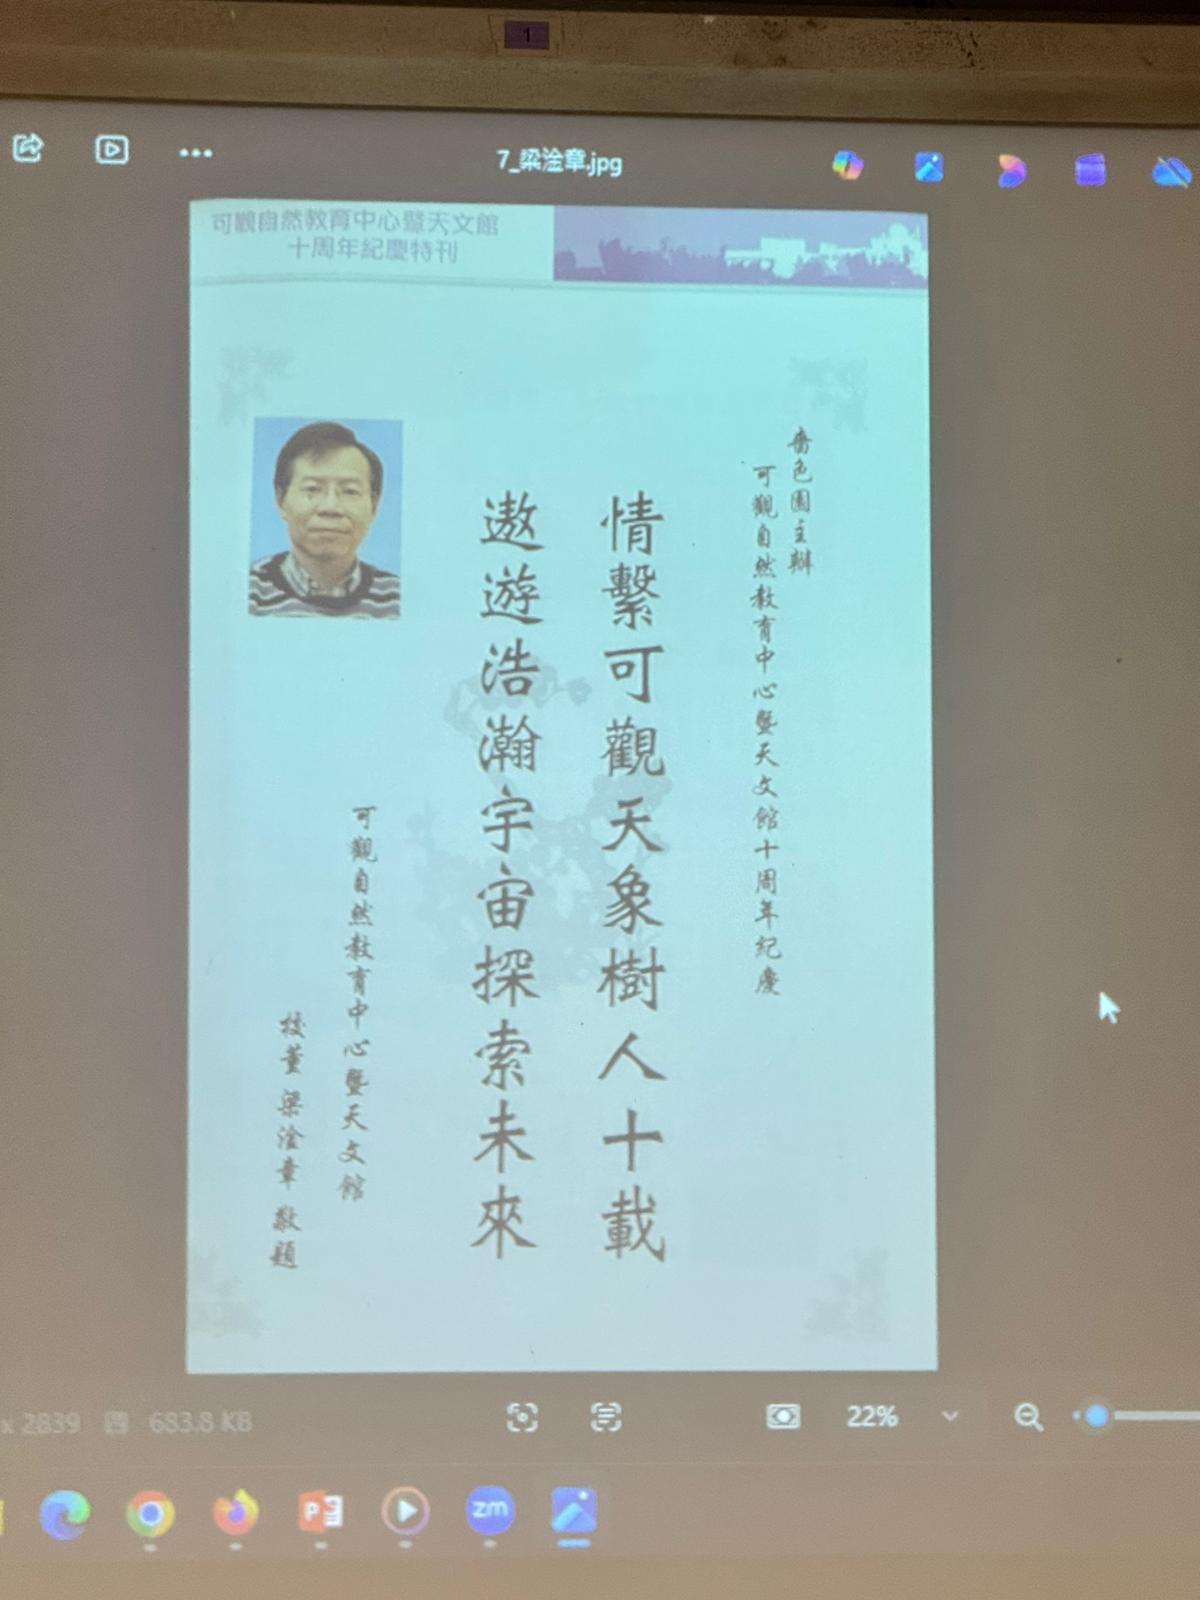 1
7_梁淦章.jpg
可觀自然教育中心暨天文館
十周年紀慶特刊
嗇色園主辦
可觀自然教育中心暨天文館十周年紀慶
情繫可觀天象樹人十載
遨遊浩瀚宇宙探索未來
可觀自然教育中心暨天文館
校董 梁淦章 敬題
x 2839 683.8 KB 22%
P zm